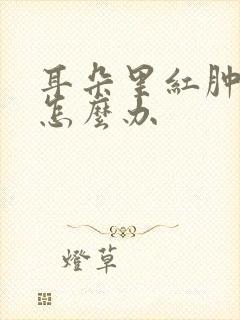 耳朵里紅肿
怎麼办
燈草